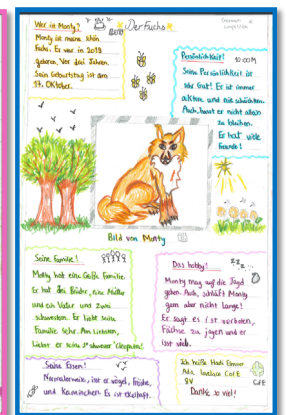 Der Fuchs
German
Competition
Wer ist Monty?
Monty ist meine schön
Fuchs. Er war in 2019
geboren, Vor drei Jahren.
Sein Geburtstag ist am
17. Oktober.
Persönlichkeit!
Seine Persönlichkeit ist
sehr Gut! Er ist immer
aktive und nie schüchtern.
Auch, hasst er nicht allein
zu bleiben.
Er hat viele
Freunde!
Bild von Monty
Seine Familie!
Monty hat eine Große Familie.
Er hat drei Brüder, eine Mutter
und ein Vater und zwei
schwestern. Er liebt seine
Familie sehr. Am Liebsten,
Liebt er seine Schwester 'Cleopatra'.
Das hobby!
Monty mag auf die Jagd
gehen. Auch, schläft Monty
gern aber nicht lange!
Er sagt es ist verboten,
Füchse zu jagen und er
isst viel.
Seine Essen!
Normalerweise, isst er vögel, Früchte,
und Kaninchen. Es ist ekelhaft.
Ich heiße Hadi
Ada Lovelace CofE
8V
Danke so viel!